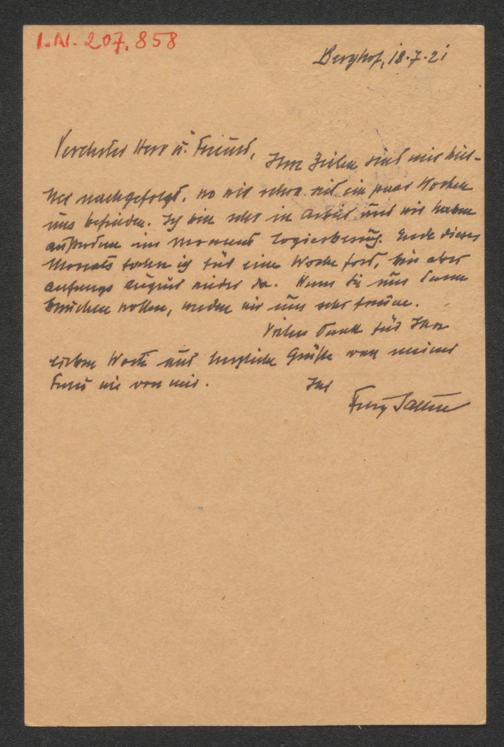 I.N. 207.858
Berghof, 18.7.21
Verehrter Herr u. Freund,
Ihre Zeilen sind mir hie-
her nachgefolgt, wo wir schon seit ein paar Wochen
uns befinden. Ich bin sehr in Arbeit und wir haben
außerdem im Moment Logierbesuch. Ende dieses
Monats fahre ich für eine Woche fort, bin aber
anfangs August wieder da. Wenn Sie uns dann
besuchen wollen, werden wir uns sehr freuen.
Vielen Dank für Ihre
lieben Worte und herzliche Grüße von meiner
Frau wie von mir.
Ihr
Felix Salten